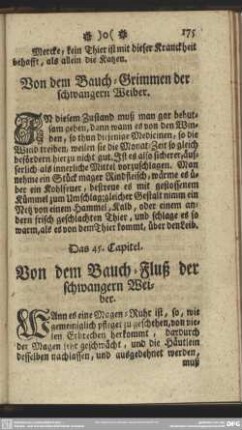 )o( 175
Mercke, kein Thier ist mit dieser Kranckheit
behafft, als allein die Katzen.
Von dem Bauch-Grimmen der
schwangern Weiber.
IN diesem Zustand muß man gar behut-
sam gehen, dann wann es von den Win-
den, so thun diejenige Medicinen, so die
Wind treiben, weilen sie die Monat-Zeit so gleich
befördern hierzu nicht gut. Ist es also sicherer, äus-
serlich als innerliche Mittel vorzuschlagen. Man
nehme ein Stück mager Rindfleisch, wärme es ü-
ber ein Kohlfeuer, bestreue es mit gestossenem
Kümmel zum Umschlag; gleicher Gestalt nimm ein
Netz von einem Hammel, Kalb, oder einem an-
dern frisch geschlachten Thier, und schlage es so
warm, als es von dem Thier kommt, über den Leib.
Das 45. Capitel.
Von dem Bauch-Fluß der
schwangern Wei-
ber.
WAnn es eine Magen-Ruhr ist, so, wie
gemeiniglich pfleget zu geschehen, von vie-
len Erbrechen herkommt, dardurch
der Magen sehr geschwächt, und die Häutlein
desselben nachlassen, und ausgedehnet werden,
muß